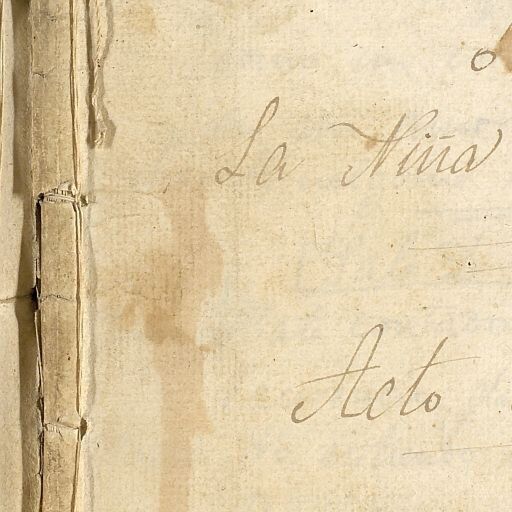 o
La Niña
Acto